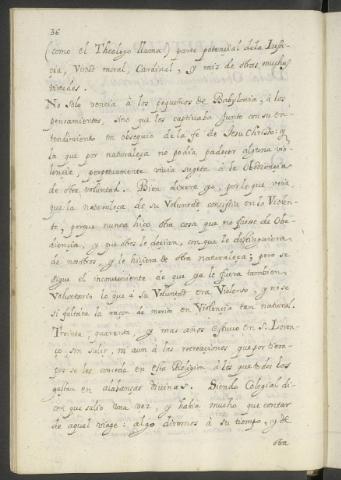 36
(como el Theologo llama) parte potencial dela Justi-
cia, Virtd moral, Cardinal, y raiz de otras muchas
virtudes.
No solo vencia à los pequeños de Babylonia, à los
pensamientos, sino que los captivaba junto con su en-
tendimiento en obsequio de la fè de Jesu Christo: y
la que por naturaleza no podia padecer alguna vio-
lencia, perpetuamente vivia sugeta à la Obediencia
de otra voluntad. Bien dixera yo, por lo que veìa
que la naturaleza de su Voluntad consistia en lo Violen-
to, porque nunca hizo otra cosa que no fuese de Obe-
diencia, y
de nosotros, y le hiciera de otra naturaleza; pero se
sigue el inconveniente de que ya le fuera tambien
Voluntario lo que à su Voluntad era Violento, y no se
si faltara la razon de merito en Violencia tan natural.
Treinta, quarenta, y mas años estuvo en S. Loren-
ço, sin salir, ni aun à las recreaciones que por tiem-
pos se les concede en esta Religion à los que todos los
gastan en alabanzas divinas. Siendo Colegial di-
cen que saliò una vez, y habìa mucho que contar
de aquel viage: algo diremos à su tiempo, y de
otra